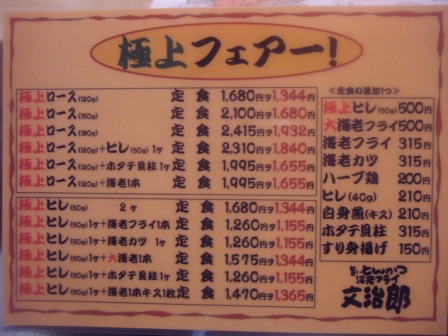 極上フェアー!
極上ロース(120g) 定食 1,680円ヲ1,344円
極上ロース(150g) 定食 2,100円ヲ1,680円
極上ロース(180g) 定食 2,415円ヲ1,932円
極上ロース(120g)+ヒレ(50g)1ヶ 定食 2,310円ヲ1,840円
極上ロース(120g)+ホタテ貝柱1ヶ 定食 1,995円ヲ1,655円
極上ロース(120g)+海老1本 定食 1,995円ヲ1,655円
極上ヒレ(50g) 2ヶ 定食 1,680円ヲ1,344円
極上ヒレ(50g)1ヶ+海老フライ1本 定食 1,260円ヲ1,155円
極上ヒレ(50g)1ヶ+海老カツ1ヶ 定食 1,260円ヲ1,155円
極上ヒレ(50g)1ヶ+大海老1本 定食 1,575円ヲ1,344円
極上ヒレ(50g)1ヶ+ホタテ貝柱1ヶ 定食 1,260円ヲ1,155円
極上ヒレ(50g)1ヶ+海老1本キス1枚 定食 1,470円ヲ1,365円
≪定食の追加1つ≫
極上ヒレ(50g)500円
大海老フライ500円
海老フライ 315円
海老カツ 315円
ハーブ鶏 200円
ヒレ(40g) 210円
白身魚(キス)210円
ホタテ貝柱 315円
すり身揚げ 150円
とんかつ
海老フライ
文治郎